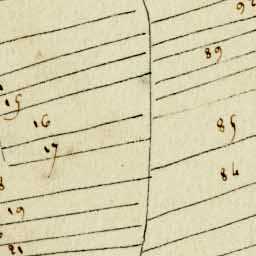 89
15
16
85
17
84
19
21